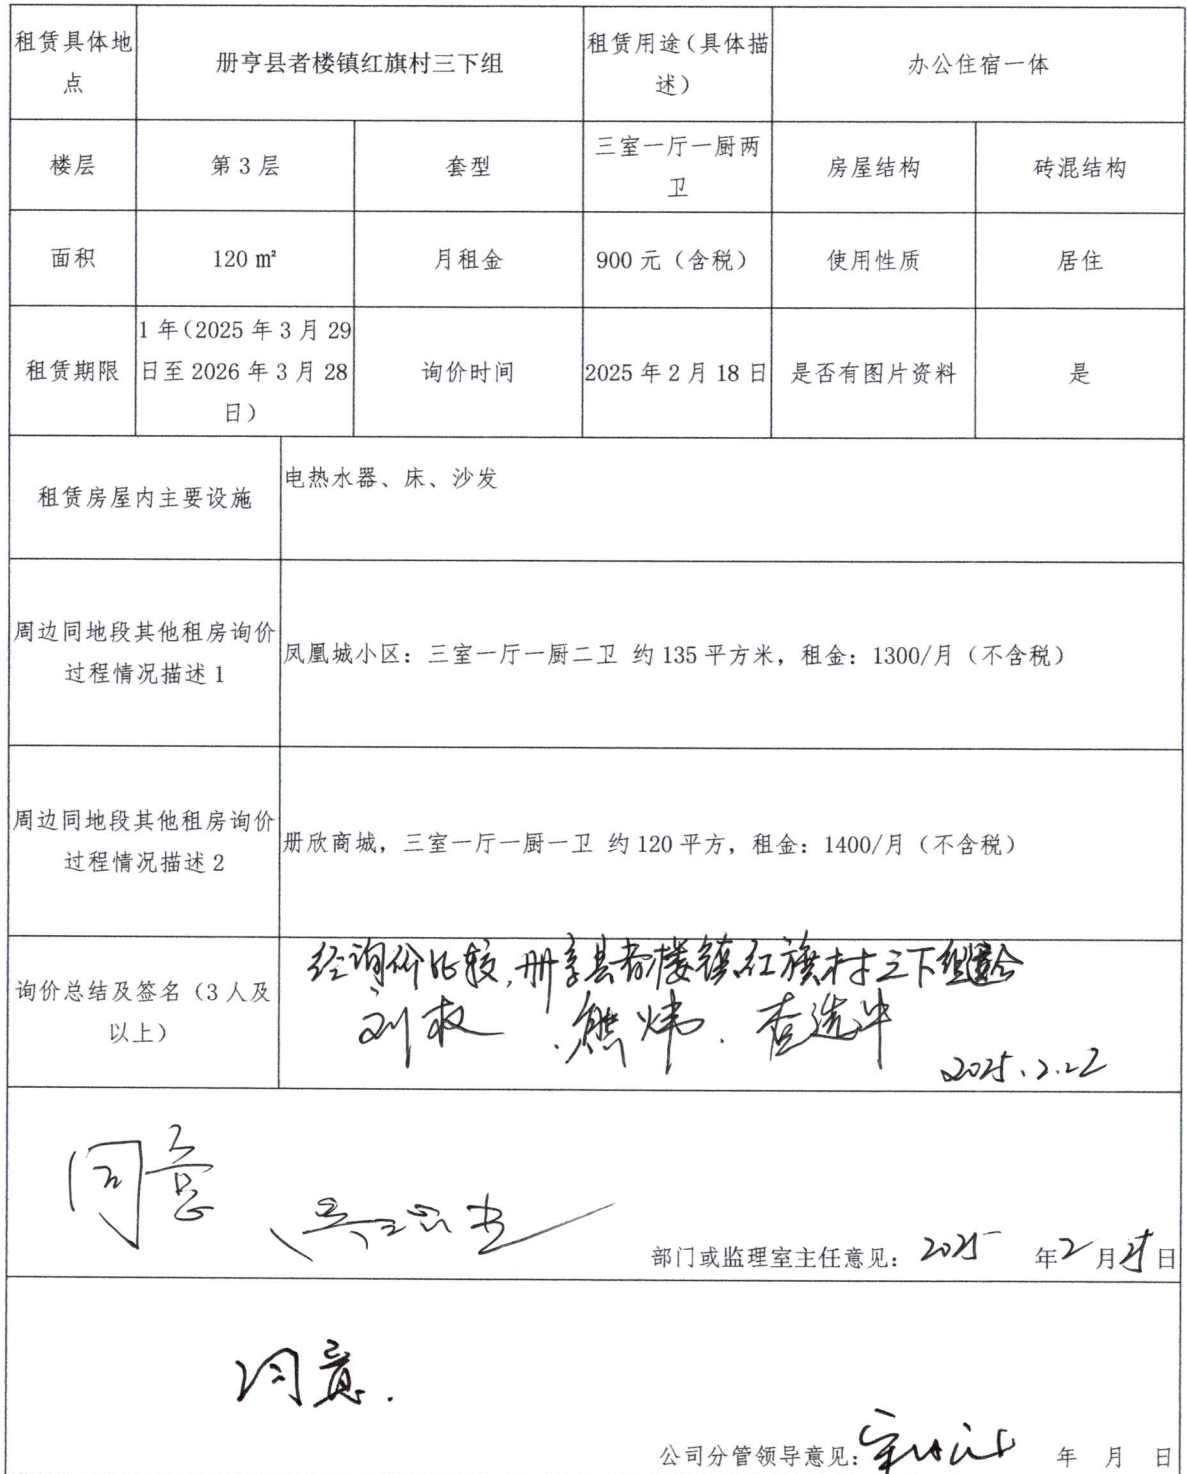 租赁具体地
点
册亨县者楼镇红旗村三下组
租赁用途(具体描
述)
办公住宿一体
楼层
第 3 层
套型
三室一厅一厨两
卫
房屋结构
砖混结构
面积
120 ㎡
月租金
900 元（含税）
使用性质
居住
租赁期限
1 年(2025 年 3 月 29
日至 2026 年 3 月 28
日）
询价时间
2025 年 2 月 18 日
是否有图片资料
是
租赁房屋内主要设施
电热水器、床、沙发
周边同地段其他租房询价
过程情况描述 1
凤凰城小区：三室一厅一厨二卫 约 135 平方米，租金：1300/月（不含税）
周边同地段其他租房询价
过程情况描述 2
册欣商城，三室一厅一厨一卫 约 120 平方，租金：1400/月（不含税）
询价总结及签名（3 人及
以上）
经询价比较,册亨县者楼镇红旗村三下组适合
2025.2.22
同意
部门或监理室主任意见： 2025 年 2 月 日
同意.
公司分管领导意见： 年 月 日